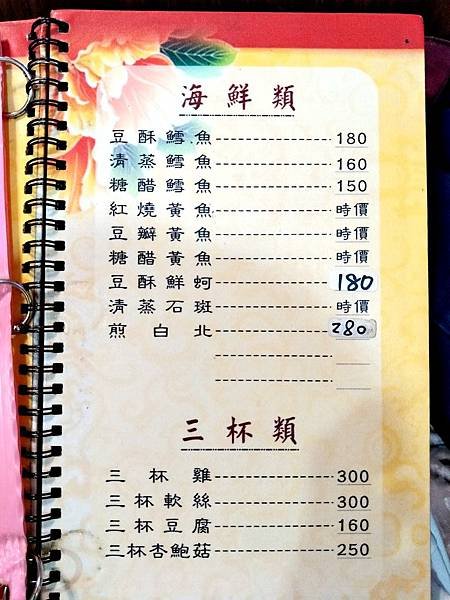 海鮮類
豆酥鱈魚 180
清蒸鱈魚 160
糖醋鱈魚 150
紅燒黃魚 時價
豆瓣黃魚 時價
糖醋黃魚 時價
豆酥鮮蚵 180
清蒸石斑 時價
煎白北 280
三杯類
三杯雞 300
三杯軟絲 300
三杯豆腐 160
三杯杏鮑菇 250